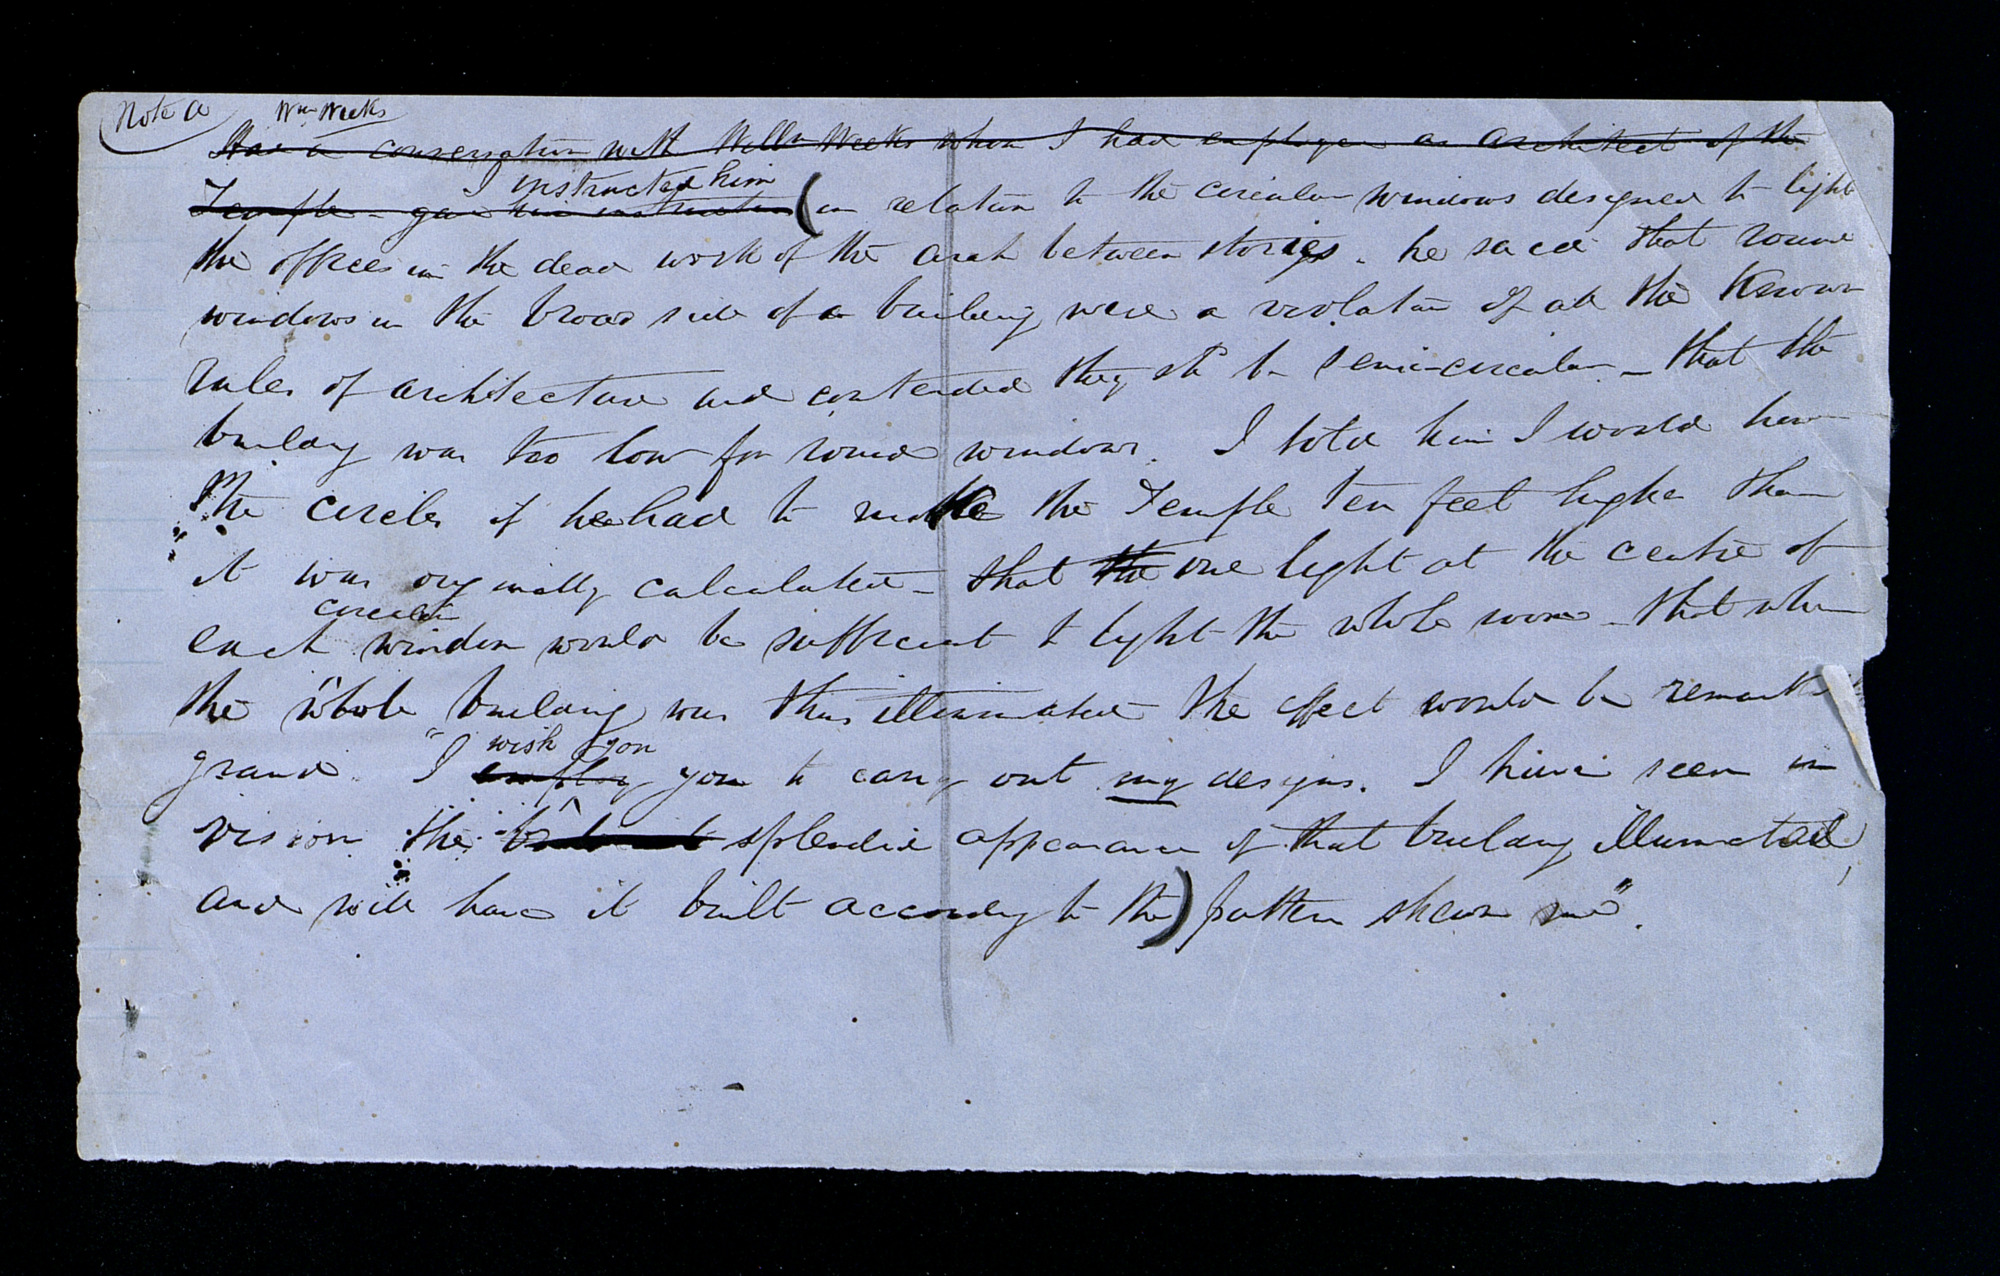 Note a
Wm Weeks
Had a conversation with Willm Weeks whom I had employed as architect of the
I instructed him
Temple - gave him instruction (in relation to the circular windows designed to light
the offices in the dead work of the arch between stories. he said that round
windows in the broad side of a building were a violation of all the known
rules of architecture and contended they shd be semi-circular - that the
building was too low for round windows. I told him I would have
the circles if he had to make the Temple ten feet higher than
it was originally calculated - that the one light at the centre of
circular
each window would be sufficient to light the whole room - that when
the whole building was thus illuminated the effect would be remark
grand. "I employ you to carry out my designs. I have seen in
wish you
vision the splendid appearance of that building illuminated,
and will have it built according to the) pattern shewn me".